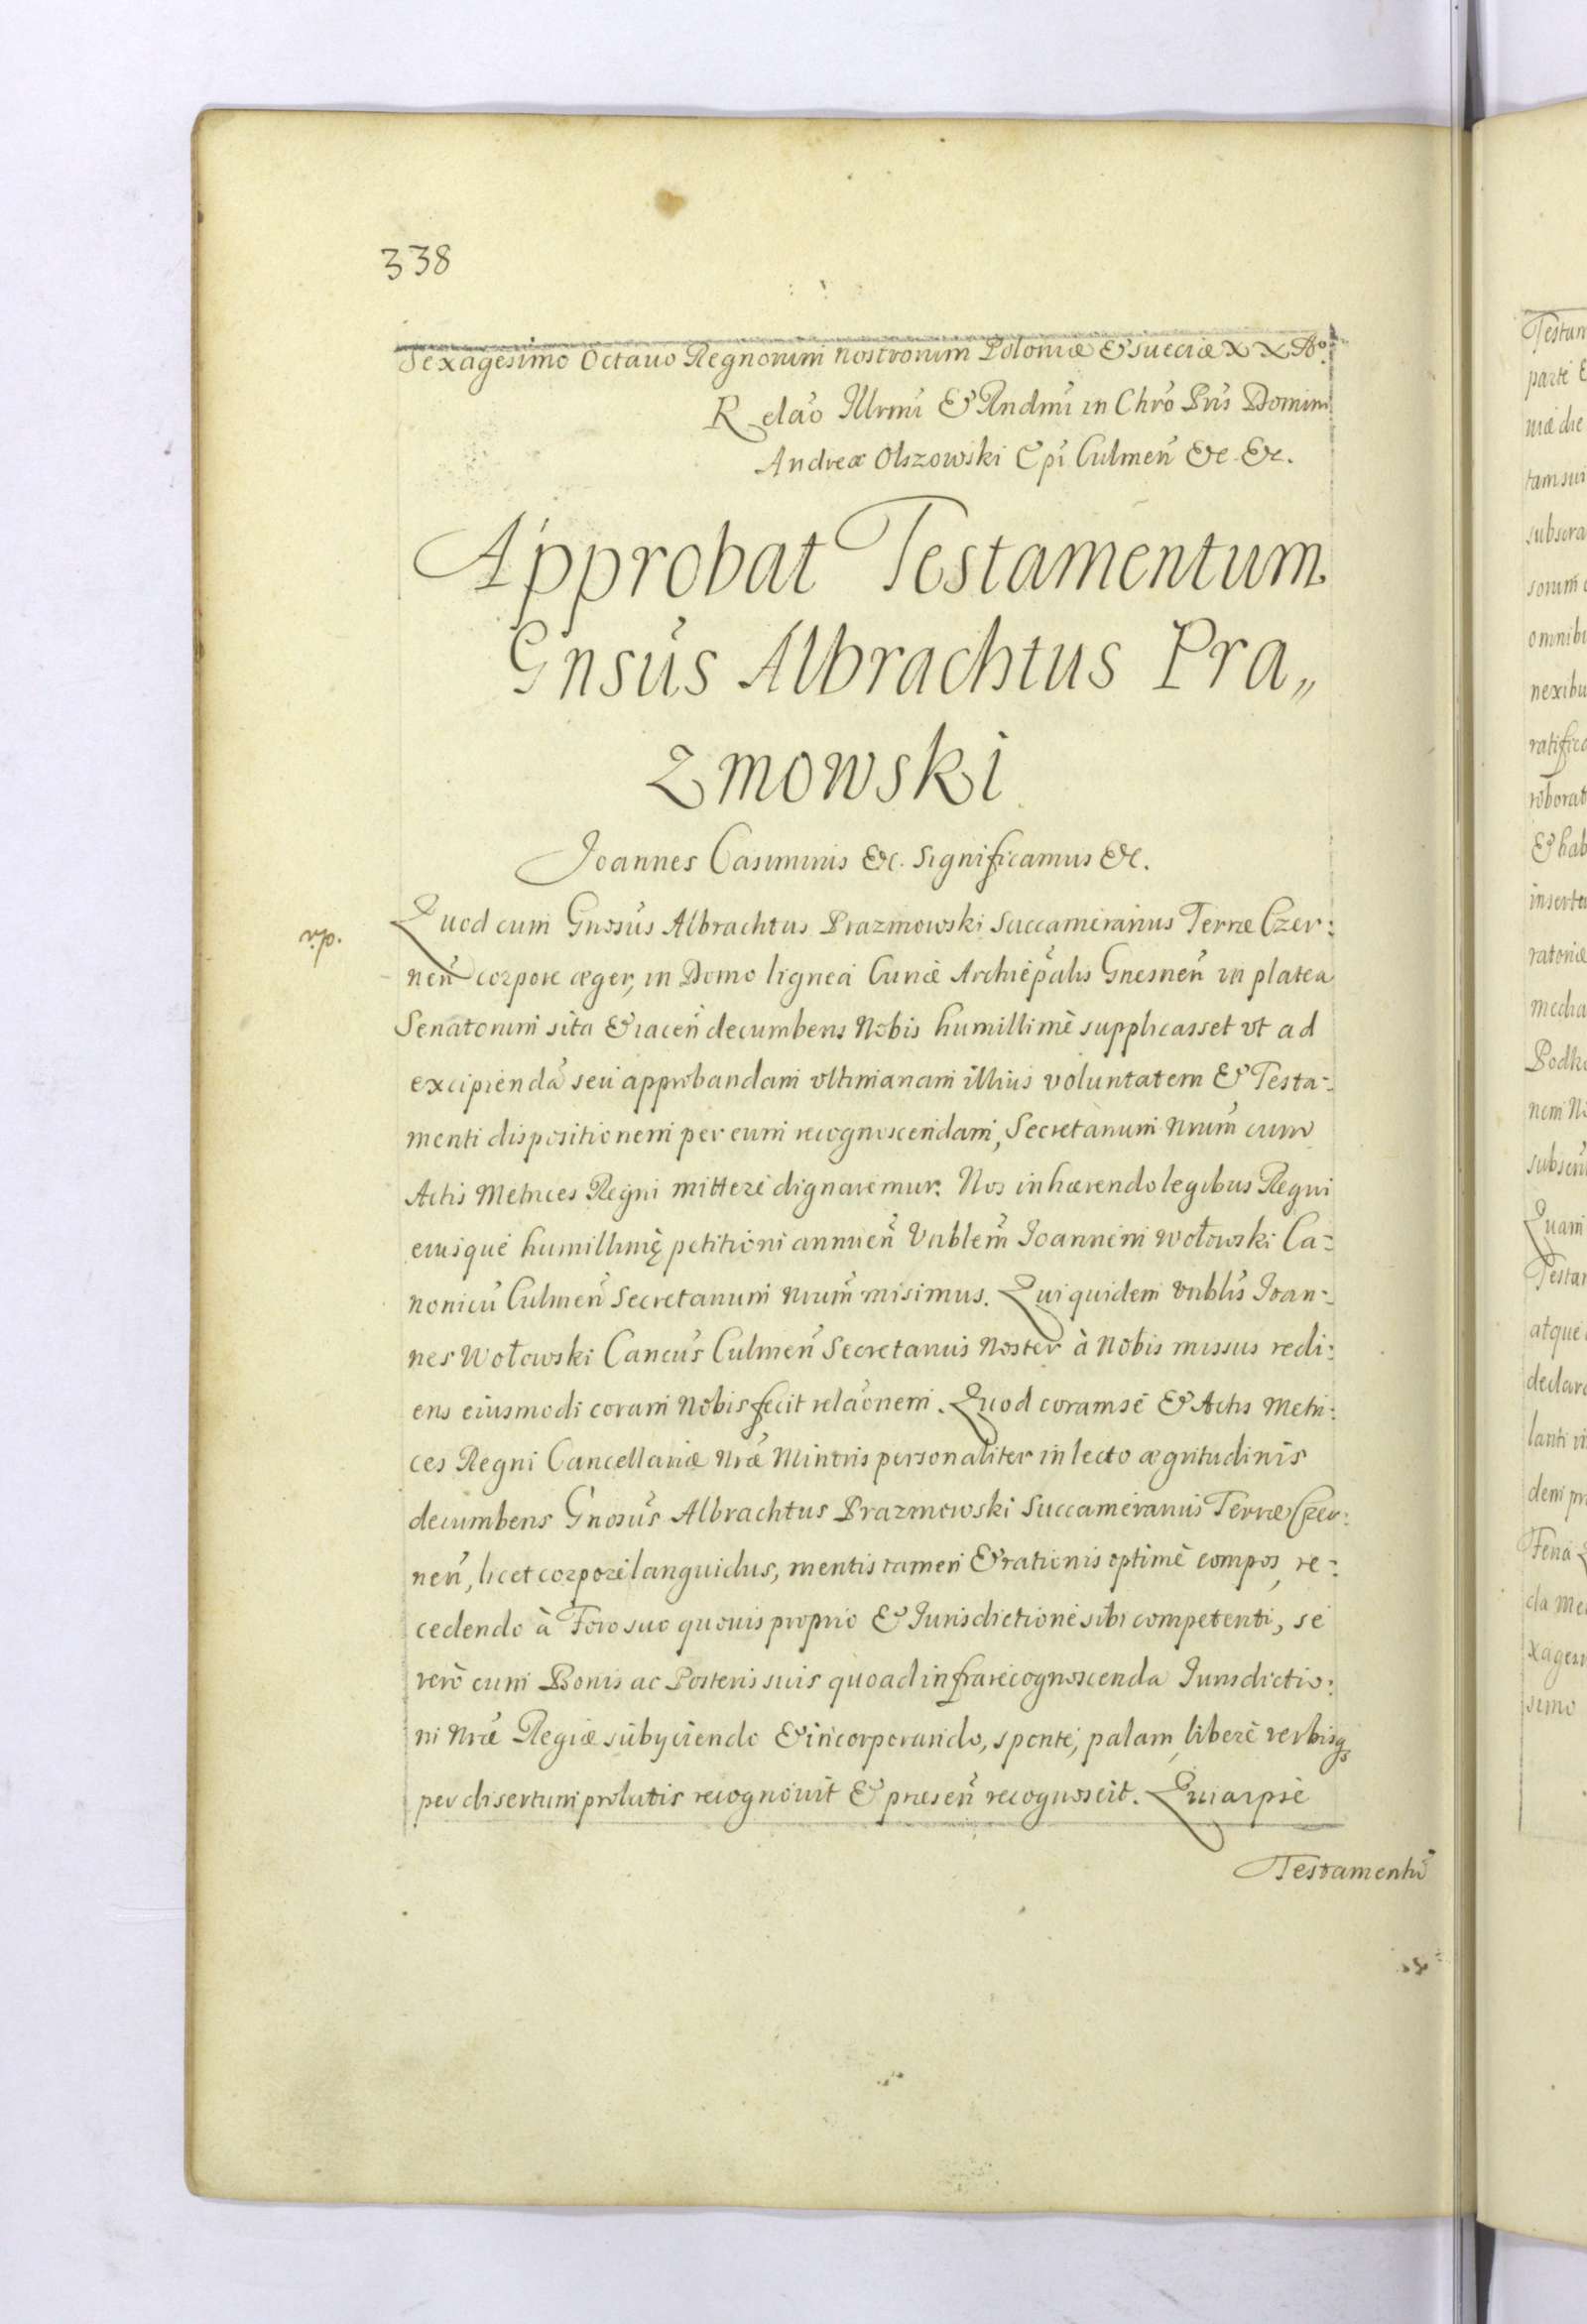 338
Sexagesimo Octauo Regnorum nostrorum Poloniæ & Sueciæ XX Aº.
Relaõ Illrmi & Rndmi in Chrõ Pris Domini
Andreæ Olszowski Epi Culmeñ &c. &c.
Approbat Testamentum
Gnsus Albrachtus Pra„
zmowski
Joannes Casimirus &c. Significamus &c.
vp.
Quod cum Gnosus Albrachtus Prazmowski Succamerarius Terræ Czer:
neñ corpore æger, in Domo lignea Curiæ Archiepalis Gnesneñ in platea
Senatorum sita & iaceñ decumbens Nobis humillimè supplicasset vt ad
excipiendã seu approbandam vltimariam illius voluntatem & Testa:
menti dispositionem per eum recognoscendam, Secretarium Nrum cum
Actis Metrices Regni mittere dignaremur. Nos inhærendo legibus Regni
eiusque humillimę petitioni annueñ Vnblem Joannem Wołowski Ca:
nonicũ Culmeñ Secretarium Nrum misimus. Qui quidem Vnblis Joan:
nes Wołowski Cancus Culmeñ Secretarius Noster à Nobis missus redi:
ens eiusmodi coram Nobis fecit relaõnem. Quod coram se & Actis Metri:
ces Regni Cancellariæ Nræ Minoris personaliter in lecto ægritudinis
decumbens Gnosus Albrachtus Prazmowski Succamerarius Terræ Czer:
neñ, licet corpore languidus, mentis tamen & rationis optimè compos, re:
cedendo à Foro suo quouis proprio & Jurisdictione sibi competenti, se
verò cum Bonis ac Posteris suis quoad infra recognoscenda Jurisdictio:
ni Nræ Regiæ subyciendo & incorporando, sponte, palam, liberè verbisqs
per disertum prolatis recognouit & præseñ recognoscit. Quia ipse
Testamentũ